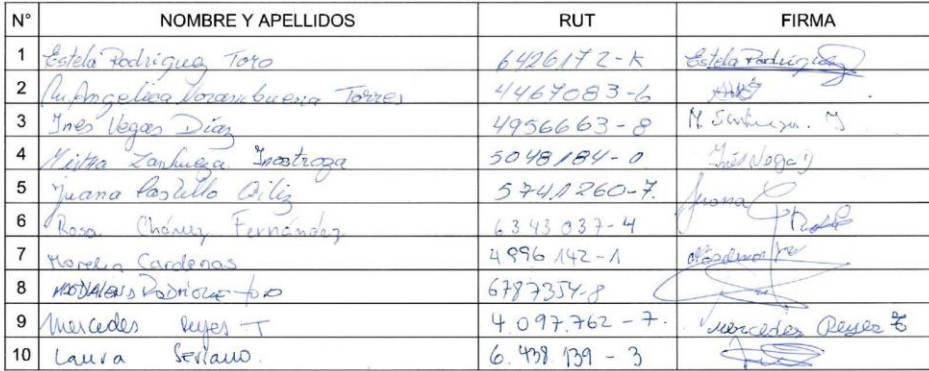 N° NOMBRE Y APELLIDOS RUT FIRMA
1 Estela Rodriguez Toro 6426172-K Estela Rodriguez
2 Angelica Torres 4467083-6
3 Ines Vegas Díaz 4956663-8
4 Inostroza 5048184-0 Inés Vega
5 Juana Castillo 5741260-7. Juana
6 Rosa Chávez Fernández 6343037-4
7 Morelia Cardenas 4996142-1
8 6787354-8
9 Mercedes Reyes T 4.097.762-7. Mercedes Reyes
10 Laura Seriano. 6.438.139-3